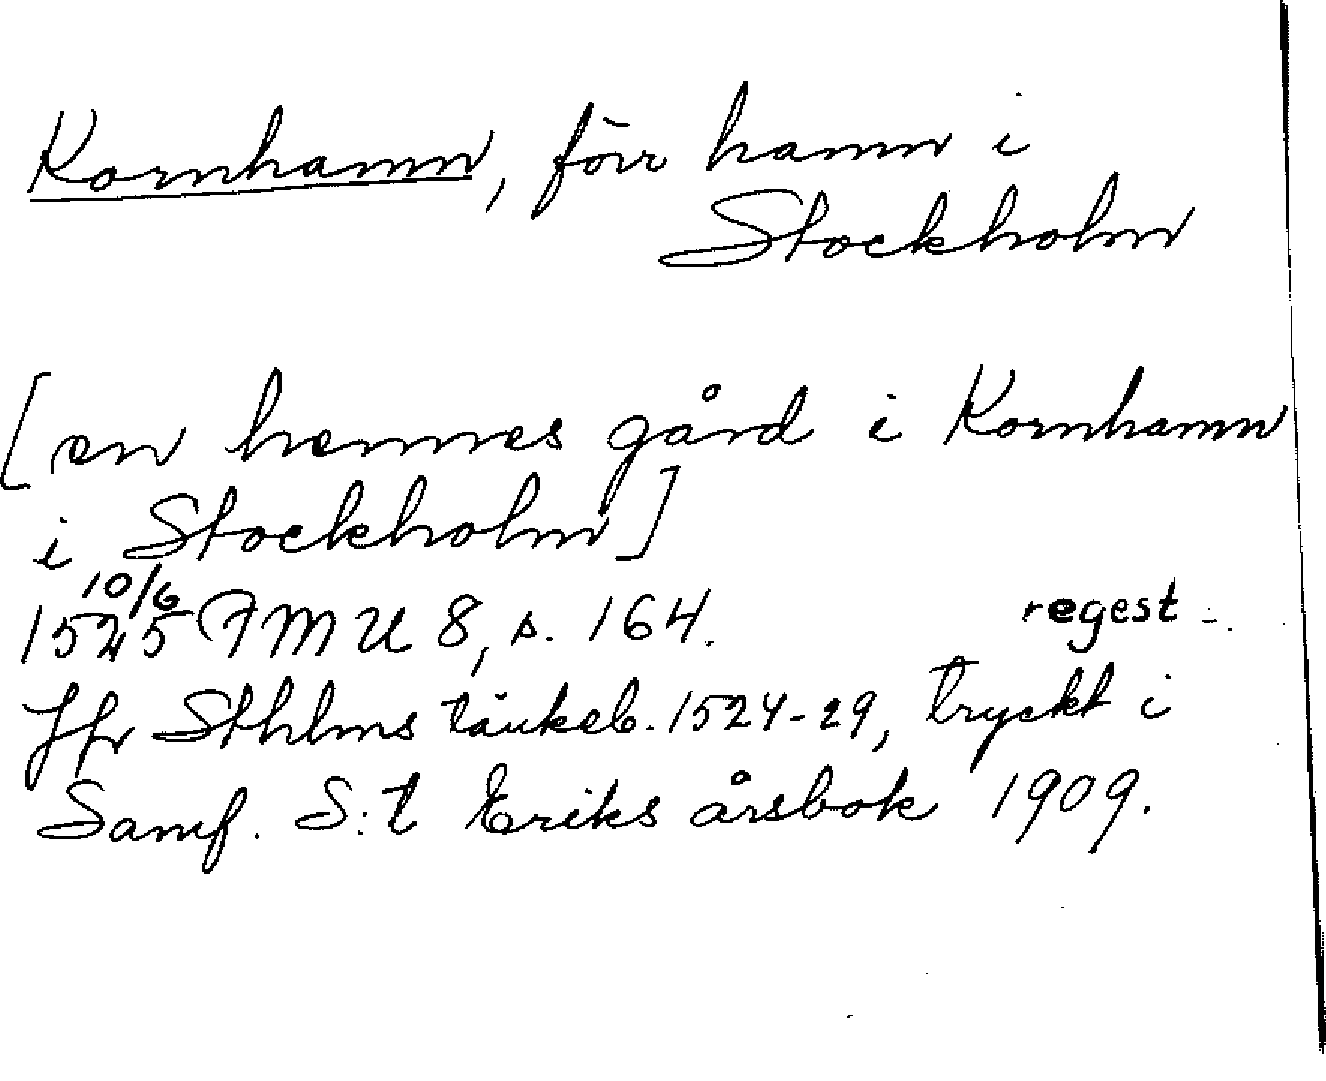 Kornhamn, förr hamn i
Stockholm
[en hennes gård i Kornhamn
i Stockholm]
10/6
1525 FMU 8, s. 164. regest.
Jfr Sthlms tänkeb. 1524-29, tryckt i
Samf. S:t Eriks årsbok 1909.